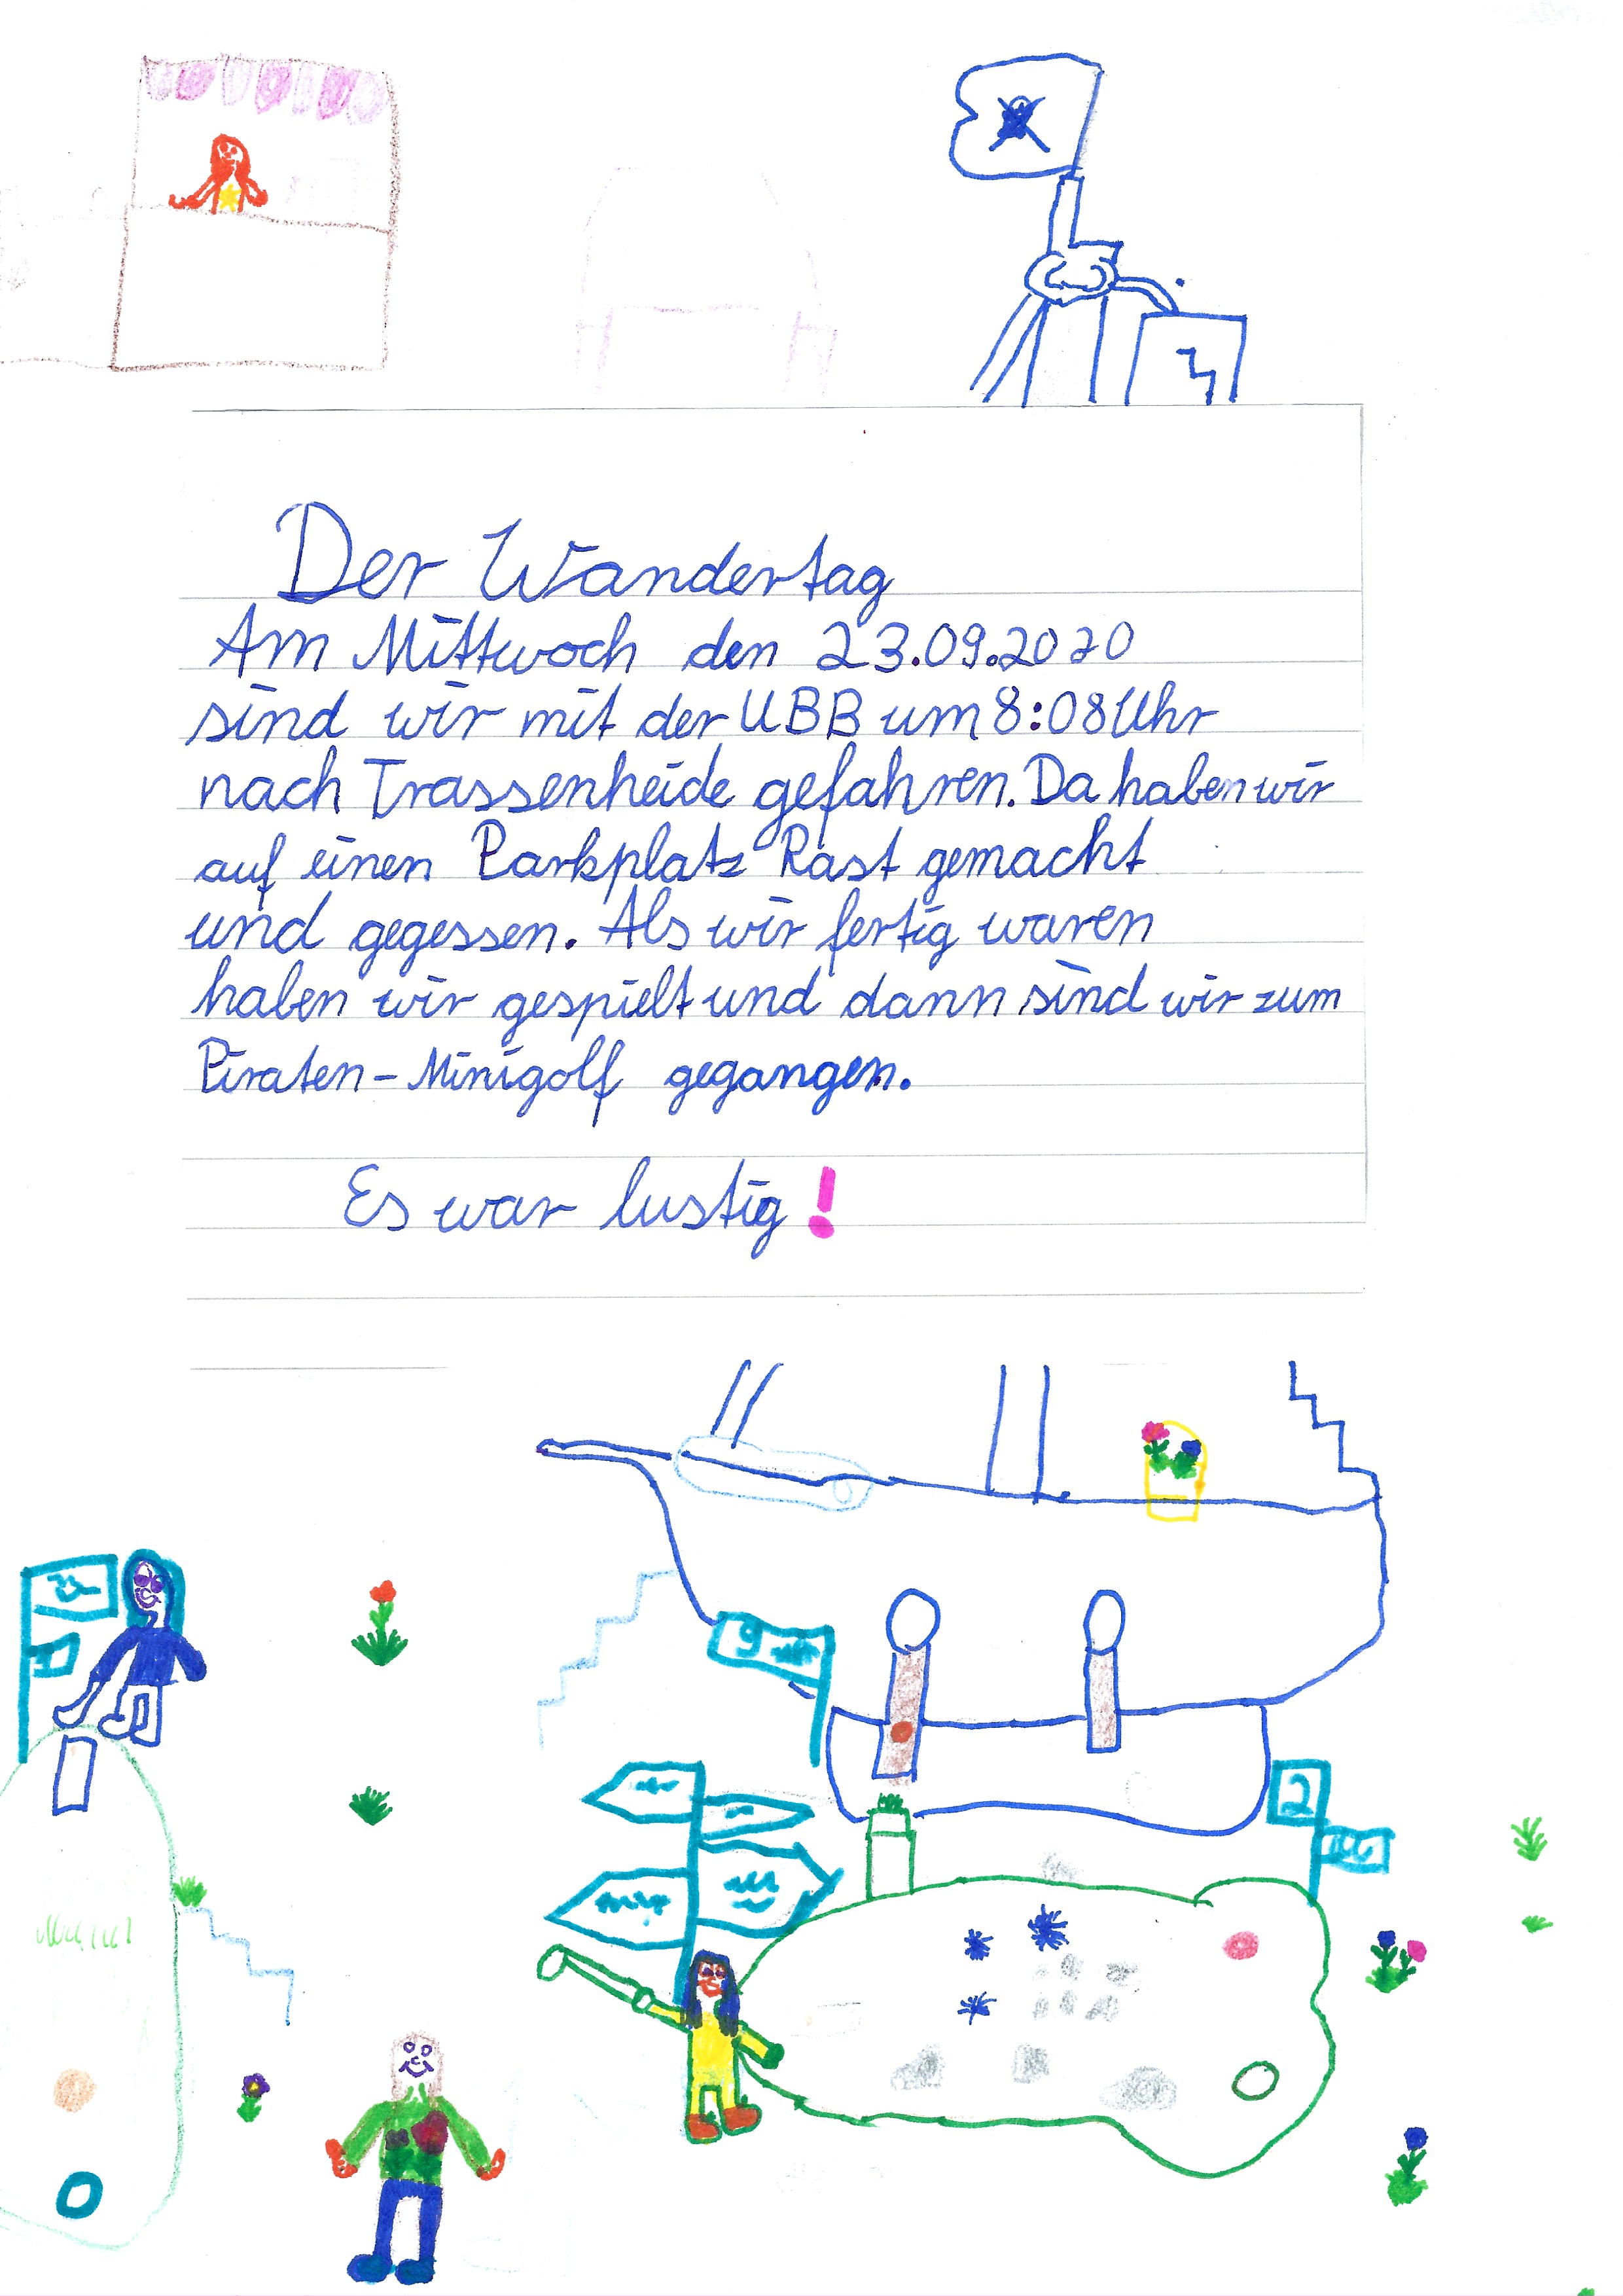 Der Wandertag
Am Mittwoch den 23.09.2020
sind wir mit der UBB um 8:08 Uhr
nach Trassenheide gefahren. Da haben wir
auf einen Parkplatz Rast gemacht
und gegessen. Als wir fertig waren
haben wir gespielt und dann sind wir zum
Piraten-Minigolf gegangen.
Es war lustig!
9
2